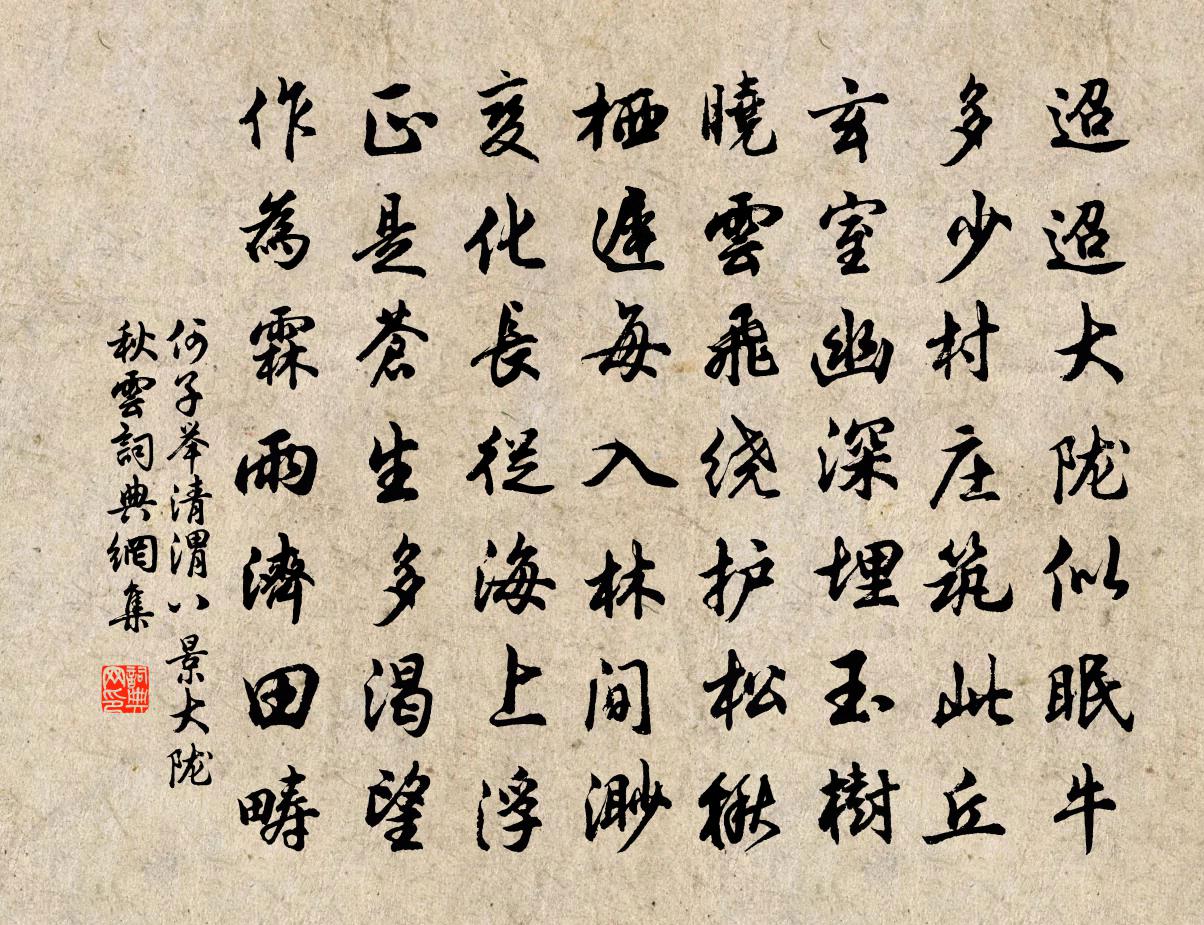 迢迢大陇似眠牛
多少村庄筑此丘
玄室幽深埋玉樹
曉雲飛绕护松楸
栖遲每入林间渺
变化長從海上浮
正是蒼生多渴望
作為霖雨濟田疇
何子举清渭八景大陇
秋雲詞典網集
詞典网印